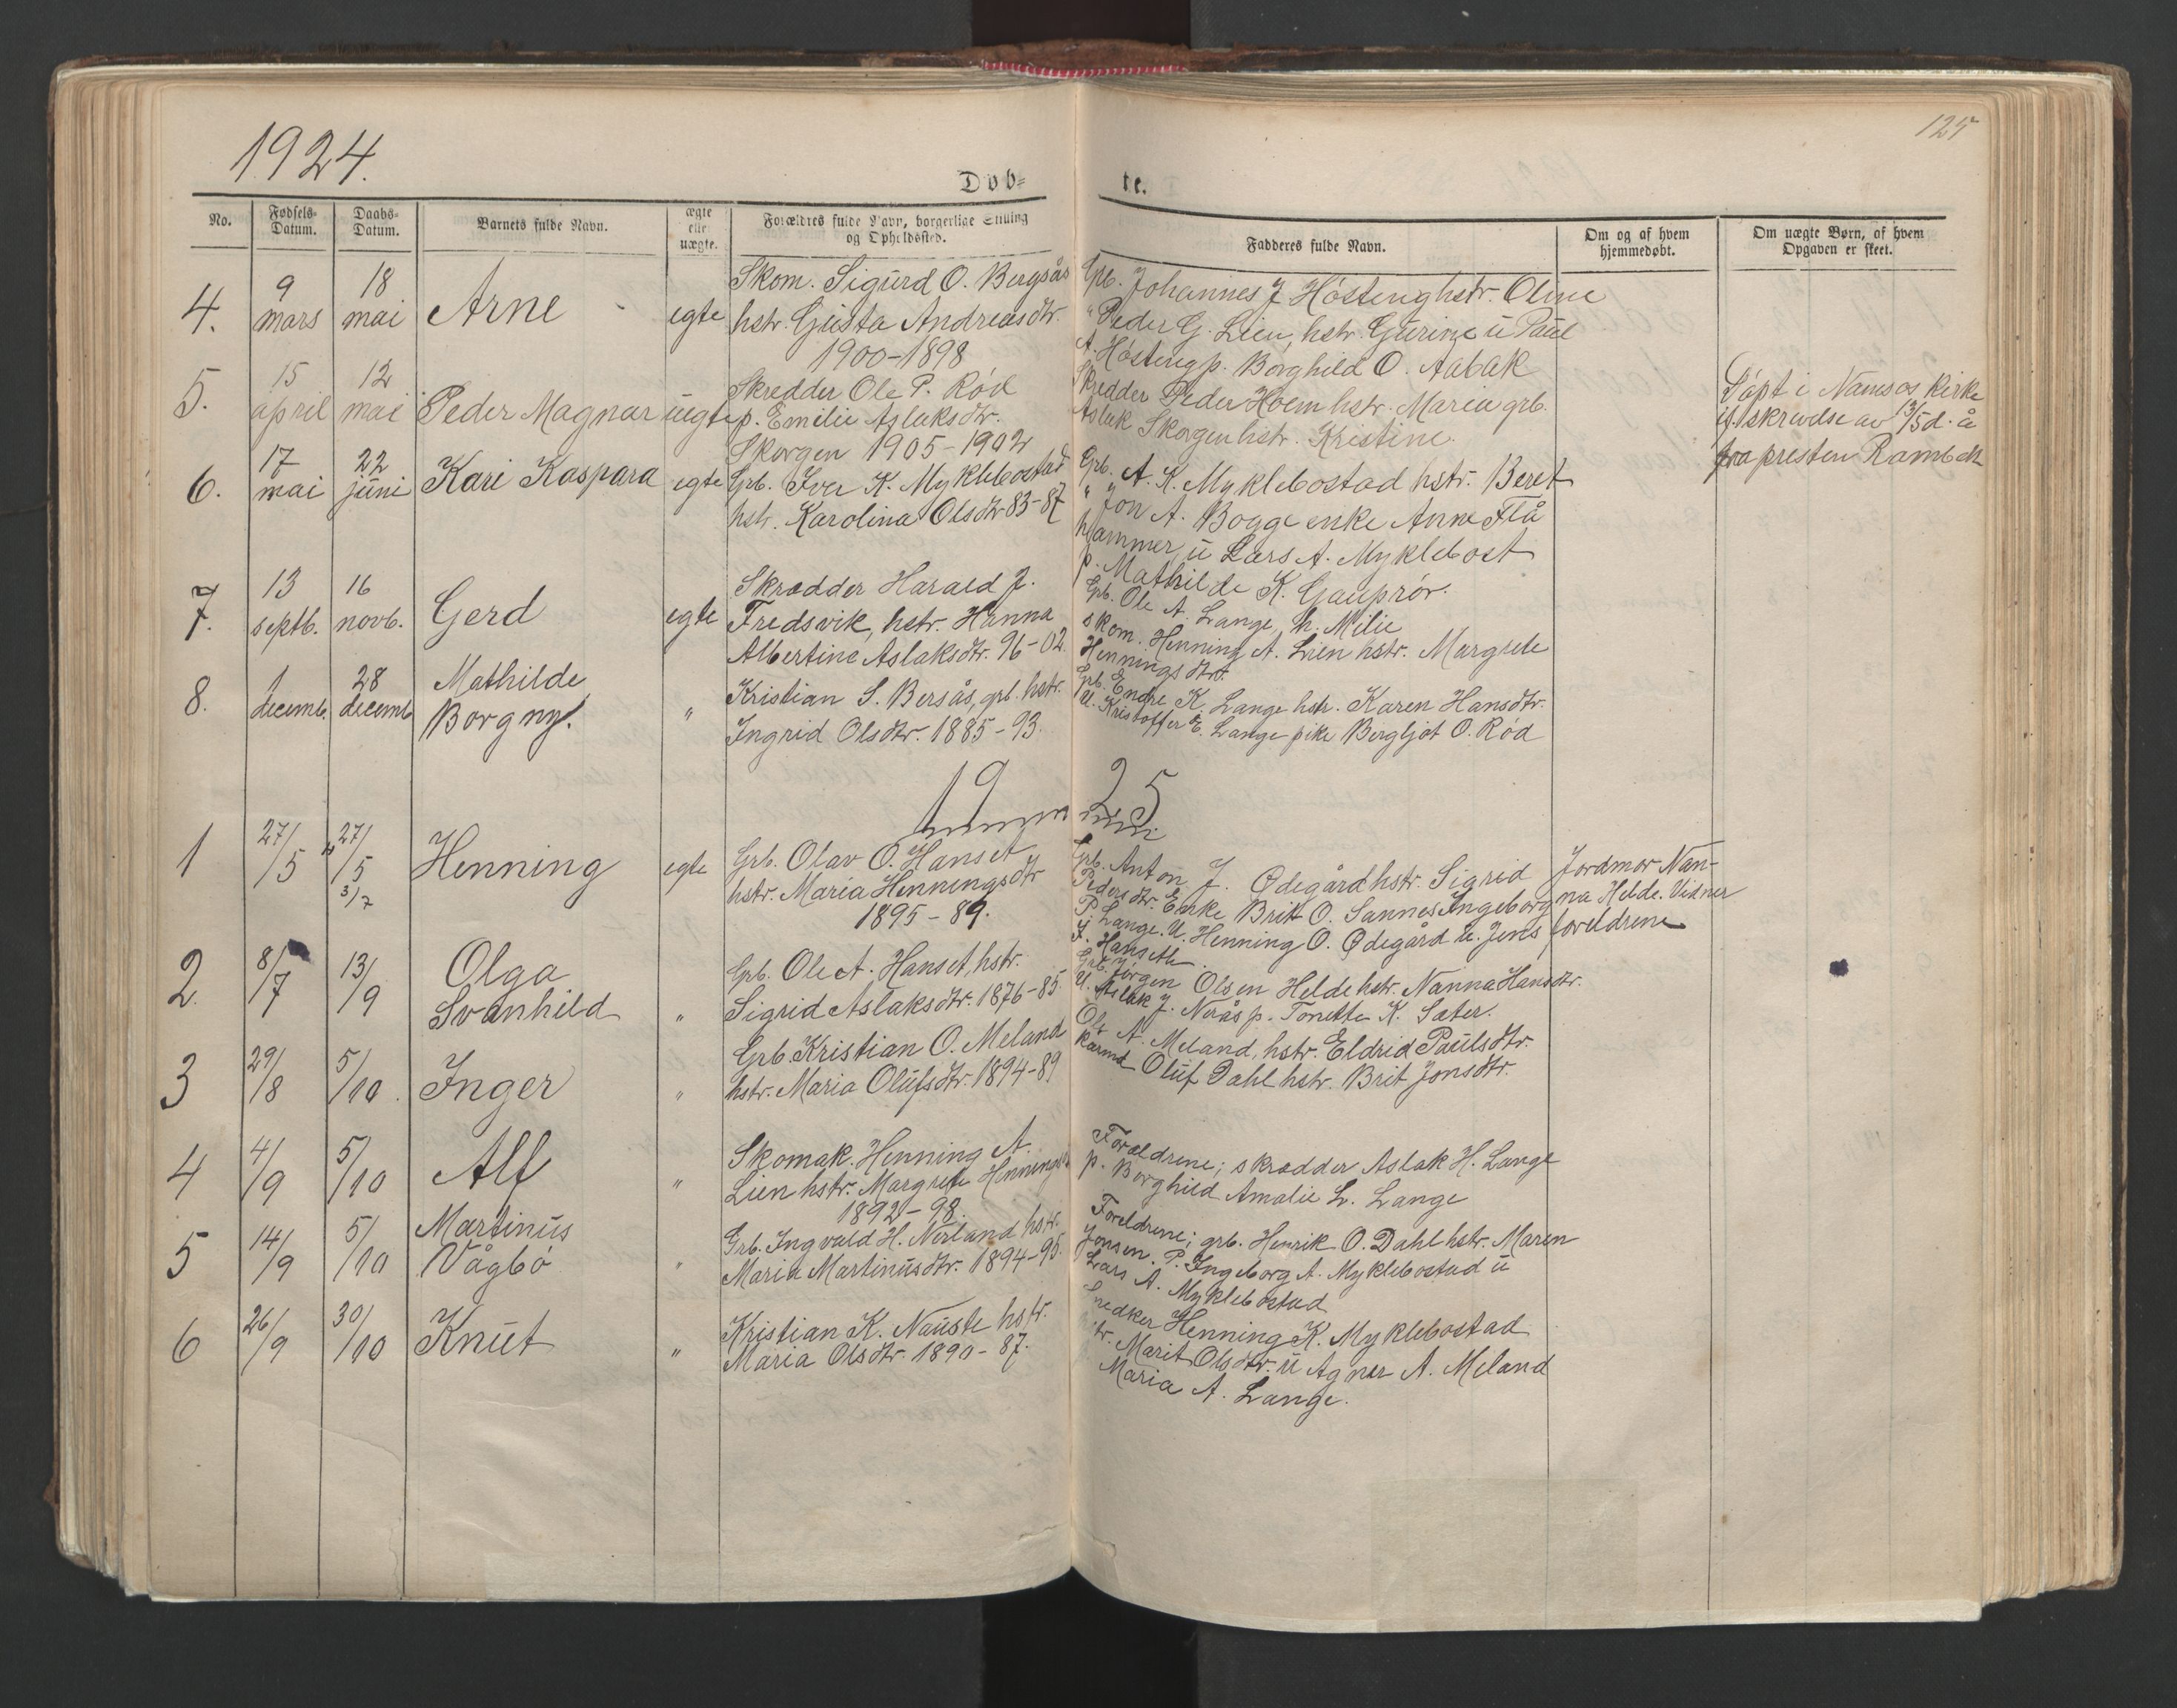 1924.
125
Døb=
te.
No.
Fødsels=
Datum.
Daabs=
Datum.
Barnets fulde Navn.
ægte
eller
uægte.
Forældres fulde Navn, borgerlige Stilling
og Opholdssted.
Fadderes fulde Navn.
Om og af hvem
hjemmedøbt.
Om uægte Børn, af hvem
Opgaven er skeet.
4.
9
mars
18
mai
Arne
egte
Skom. Sigurd O. Bergsås
hstr. Gusta Andreasdtr.
1900-1898
Grb. Johannes J Hósteng hstr. Oline
" Peder G. Lien, hstr. Gurine ü Paul
A. Hósteng p. Borghild O. Aabak
5.
15
april
12
mai
Peder Magnar
uegte
Skredder Ole P. Ród
p. Emilie Aslaksdtr.
Skorgen 1905-1902
Skredder Peder Hoem hstr. Maria grb.
Aslak Skorgen hstr. Kristine.
Dópt i Namsos kirke
if. skrivelse av 13/5 d. å
fra presten Rambech
6.
17
mai
22
juni
Kari Kaspara
egte
Grb. Iver K. Myklebostad
hstr. Karolina Olsdtr 83-87
Grb. A. K. Myklebostad hstr. Beret
" " Jon A. Bogge enke Anne Flå
hjammer, ü Lars A. Myklebost
p. Mathilde K. Gauprór.
7.
13
septb.
16
novb.
Gerd
egte
Skrædder Harald J.
Fredsvik, hstr. Hanna
Albertine Aslaksdtr. 96-02.
Grb. Ole A. Lange, h. Milie
skom. Henning A. Lien hstr. Margrete
Henningsdtr.
8.
1
decemb.
28
decemb
Mathilde
Borgny.
"
Kristian S. Bersås, grb. hstr.
Ingrid Olsdtr. 1885-93.
Grb. Endre K. Lange hstr. Karen Hansdtr.
U. Kristoffer E. Lange pike Bergljot O. Ród
1925
1
27/5
27/5
3/7
Henning
egte
Grb. Olav O. Hanset
hstr. Maria Henningsdtr
1895-89.
Grb. Anton J. Ødegård hstr. Sigrid
Pedersdtr. Enke Brit O. Sannes Ingeborg
P. Lange. U. Henning O. Ødegård u. Jens
J. Hanseth.
Jordmor Nan-
na Helde. Vidner
foreldrene
2.
8/7
13/9
Olga
Svanhild
"
Grb. Ole A. Hanset, hstr.
Sigrid Aslaksdtr. 1876-85
Grb. Jórgen Olsen Helde hstr. Nanna Hansdtr.
U. Aslak J. Nerås p. Tonette K. Sæter.
3
29/8
5/10.
Inger
"
Grb. Kristian O. Meland
hstr. Maria Olüfsdtr. 1894-89
Ole A. Meland, hstr. Eldrid Paulsdtr.
Karmd Olüf Dahl hstr. Brit Jonsdtr.
4
4/9
5/10
Alf
"
Skomak. Henning A.
Lien hstr. Margrete Henningsd.
1892-98.
Forældrene; skrædder Aslak H. Lange
p. Borghild Amalie L. Lange
5
14/9
5/10
Martinüs
Vågbó
"
Grb. Ingvald H. Nerland hstr.
Maria Martinüsdtr. 1894-95.
Foreldrene; grb. Henrik O. Dahl hstr. Maren
Jonsen. P. Ingeborg A. Myklebostad ü
Lars A. Myklebostad
6
26/9
30/10
Knüt
"
Kristian K. Nauste hstr.
Maria Olsdtr. 1890-87.
Snedker Henning K. Myklebostad
hstr. Marit Olsdtr. ü Agner A. Meland
Maria A. Lange.